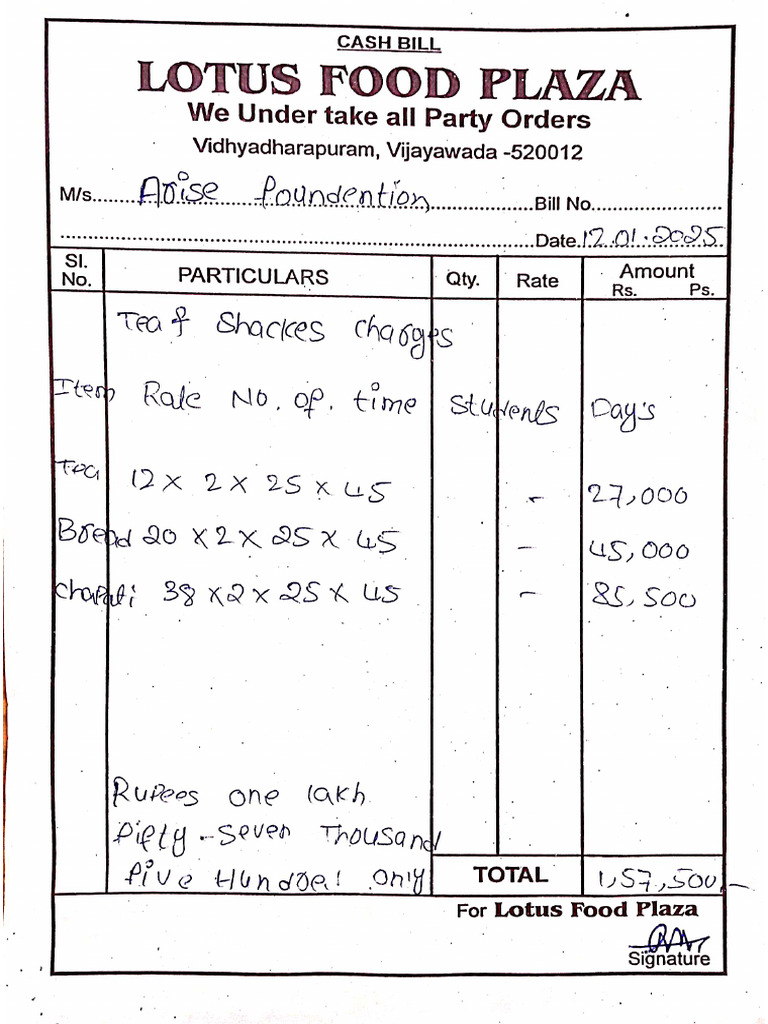 CASH BILL
LOTUS FOOD PLAZA
We Under take all Party Orders
Vidhyadharapuram, Vijayawada -520012
M/s. Arise foundention Bill No.
Date. 12.01.2025
Sl. No. PARTICULARS Qty. Rate Amount Rs. Ps.
Tea & Shackes charges
Item Rate No. of. time Students Day's
Tea 12 x 2 x 25 x 45 - 27,000
Bread 20 x 2 x 25 x 45 - 45,000
Chapati 38 x 2 x 25 x 45 - 85,500
Rupees one lakh
fifty-seven Thousand
five Hundred only TOTAL 1,57,500/-
For Lotus Food Plaza
Signature